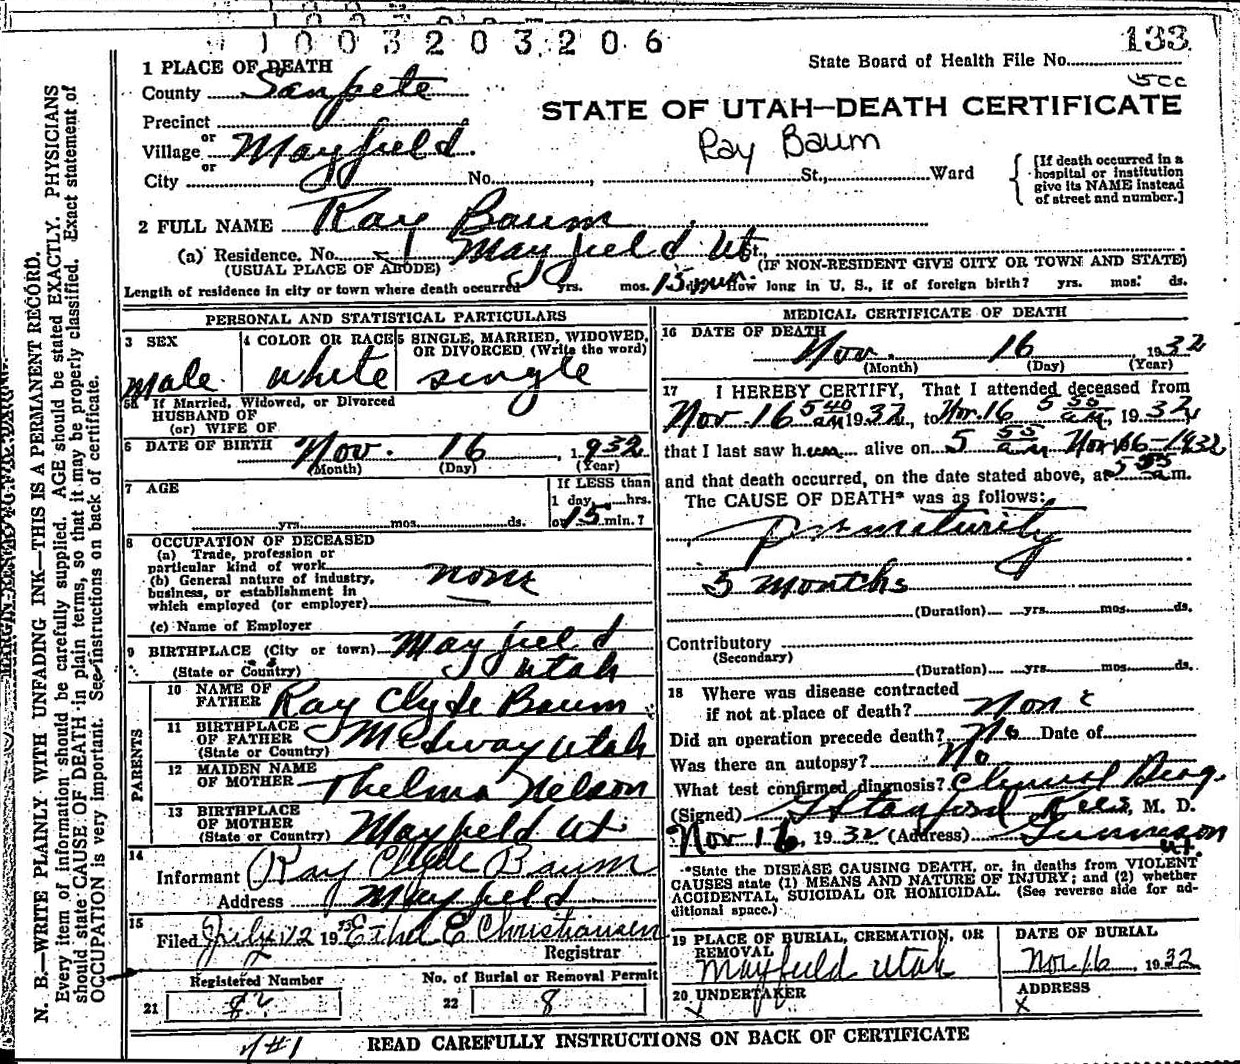 1003203206
133
State Board of Health File No.
5cc
1 PLACE OF DEATH
County Sanpete
STATE OF UTAH—DEATH CERTIFICATE
Precinct
or
Ray Baum
Village Mayfield
or
City No. , St., Ward
[If death occurred in a hospital or institution give its NAME instead of street and number.]
2 FULL NAME Ray Baum
(a) Residence. No. Mayfield Ut St.,
(USUAL PLACE OF ABODE) (IF NON-RESIDENT GIVE CITY OR TOWN AND STATE)
Length of residence in city or town where death occurred yrs. mos. 15 ds. How long in U. S., if of foreign birth? yrs. mos. ds.
PERSONAL AND STATISTICAL PARTICULARS
3 SEX
Male
4 COLOR OR RACE
white
5 SINGLE, MARRIED, WIDOWED, OR DIVORCED (Write the word)
single
5a If Married, Widowed, or Divorced
HUSBAND OF
(or) WIFE OF
6 DATE OF BIRTH Nov. 16, 1932
(Month) (Day) (Year)
7 AGE
yrs. mos. ds.
If LESS than
1 day, hrs.
or 15 min.?
8 OCCUPATION OF DECEASED
(a) Trade, profession or
particular kind of work none
(b) General nature of industry,
business, or establishment in
which employed (or employer)
(c) Name of Employer
9 BIRTHPLACE (City or town) Mayfield
(State or Country) Utah
PARENTS
10 NAME OF FATHER Ray Clyde Baum
11 BIRTHPLACE OF FATHER (State or Country) Medway Utah
12 MAIDEN NAME OF MOTHER Thelma Nelson
13 BIRTHPLACE OF MOTHER (State or Country) Mayfield Ut
14
Informant Ray Clyde Baum
Address Mayfield
15
Filed 12 19 Ethel E Christiansen
Registrar
Registered Number No. of Burial or Removal Permit
21 22 8
MEDICAL CERTIFICATE OF DEATH
16 DATE OF DEATH
Nov. 16 1932
(Month) (Day) (Year)
17 I HEREBY CERTIFY, That I attended deceased from
Nov 16 5 40 am 1932, to Nov. 16 5 55 am, 1932,
that I last saw him alive on 5 55 am Nov 16-1932
and that death occurred, on the date stated above, at 5 55 am.
The CAUSE OF DEATH* was as follows:
Prematurity
5 months
(Duration) yrs. mos. ds.
Contributory
(Secondary)
(Duration) yrs. mos. ds.
18 Where was disease contracted
if not at place of death? None
Did an operation precede death? No Date of
Was there an autopsy? No
What test confirmed diagnosis? Clinical Diag.
(Signed) G Stanford Rees, M. D.
Nov 16, 1932 (Address) Gunnison Ut.
*State the DISEASE CAUSING DEATH, or, in deaths from VIOLENT
CAUSES state (1) MEANS AND NATURE OF INJURY; and (2) whether
ACCIDENTAL, SUICIDAL OR HOMICIDAL. (See reverse side for ad-
ditional space.)
19 PLACE OF BURIAL, CREMATION, OR REMOVAL
Mayfield Utah
DATE OF BURIAL
Nov 16, 1932
20 UNDERTAKER
x
ADDRESS
x
#1
READ CAREFULLY INSTRUCTIONS ON BACK OF CERTIFICATE
N. B.—WRITE PLAINLY WITH UNFADING INK—THIS IS A PERMANENT RECORD.
Every item of information should be carefully supplied. AGE should be stated EXACTLY. PHYSICIANS
should state CAUSE OF DEATH in plain terms, so that it may be properly classified. Exact statement of
OCCUPATION is very important. See instructions on back of certificate.